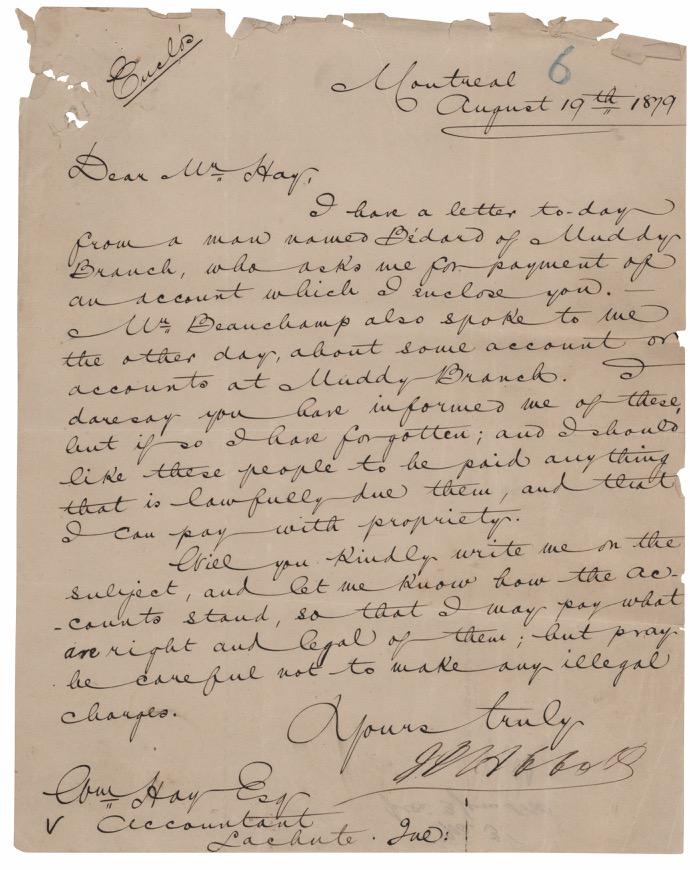 Enclos
6
Montreal
August 19th 1879
Dear Mr Hay,
I have a letter to-day
from a man named Bédard of Muddy
Branch, who asks me for payment of
an account which I enclose you. —
Mr Beauchamp also spoke to me
the other day, about some account or
accounts at Muddy Branch. I
daresay you have informed me of these,
but if so I have forgotten; and I should
like these people to be paid anything
that is lawfully due them, and that
I can pay with propriety.
Will you kindly write me on the
subject, and let me know how the ac-
-counts stand, so that I may pay what
are right and legal of them; but pray
be careful not to make any illegal
charges.
Yours truly
JJC Abbott
Wm Hay Esq
Accountant
Lachute. Que: